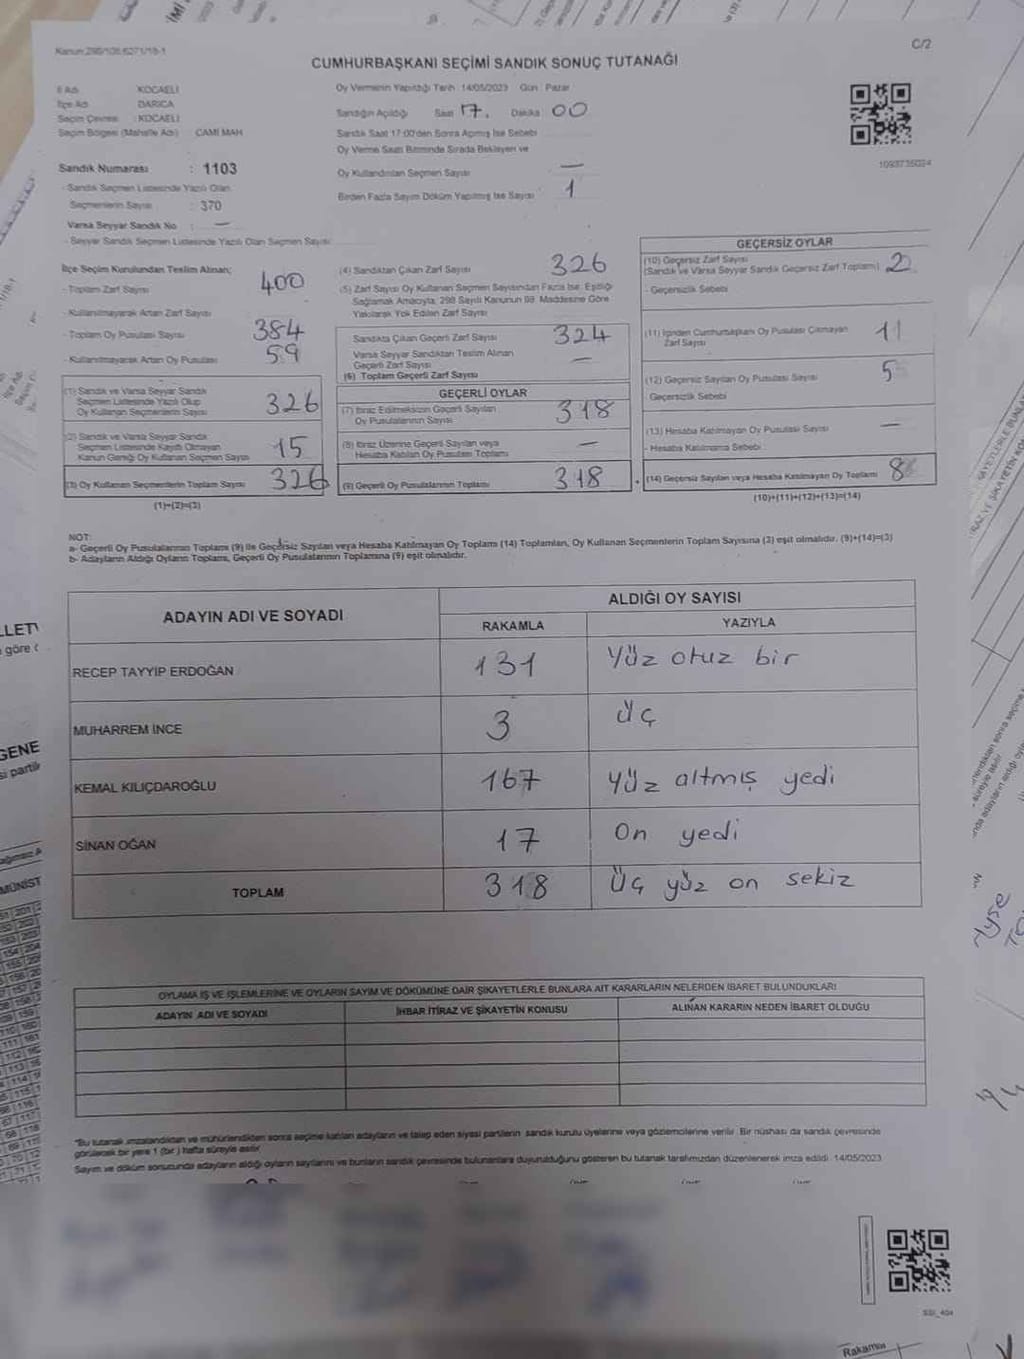 C/2
Kanun:298/108,6271/18-1
CUMHURBAŞKANI SEÇİMİ SANDIK SONUÇ TUTANAĞI
İl Adı : KOCAELİ
İlçe Adı : DARICA
Seçim Çevresi : KOCAELİ
Seçim Bölgesi (Mahalle Adı) : CAMİ MAH
Oy Vermenin Yapıldığı Tarih : 14/05/2023 Gün : Pazar
Sandığın Açıldığı Saat 17. Dakika 00
Sandık Saat 17:00'den Sonra Açılmış İse Sebebi
Oy Verme Saati Bitiminde Sırada Bekleyen ve
Oy Kullandırılan Seçmen Sayısı —
Birden Fazla Sayım Döküm Yapılmış İse Sayısı 1
1093735024
Sandık Numarası : 1103
- Sandık Seçmen Listesinde Yazılı Olan
Seçmenlerin Sayısı : 370
Varsa Seyyar Sandık No : —
- Seyyar Sandık Seçmen Listesinde Yazılı Olan Seçmen Sayısı
İlçe Seçim Kurulundan Teslim Alınan;
- Toplam Zarf Sayısı 400
- Kullanılmayarak Artan Zarf Sayısı
- Toplam Oy Pusulası Sayısı 384
- Kullanılmayarak Artan Oy Pusulası 59
(1) Sandık ve Varsa Seyyar Sandık
Seçmen Listesinde Yazılı Olup
Oy Kullanan Seçmenlerin Sayısı 326
(2) Sandık ve Varsa Seyyar Sandık
Seçmen Listesinde Kayıtlı Olmayan
Kanun Gereği Oy Kullanan Seçmen Sayısı 15
(3) Oy Kullanan Seçmenlerin Toplam Sayısı 326
(1)+(2)=(3)
(4) Sandıktan Çıkan Zarf Sayısı 326
(5) Zarf Sayısı Oy Kullanan Seçmen Sayısından Fazla İse, Eşitliği
Sağlamak Amacıyla, 298 Sayılı Kanunun 98. Maddesine Göre
Yakılarak Yok Edilen Zarf Sayısı
Sandıkta Çıkan Geçerli Zarf Sayısı 324
Varsa Seyyar Sandıktan Teslim Alınan
Geçerli Zarf Sayısı —
(6) Toplam Geçerli Zarf Sayısı
GEÇERLİ OYLAR
(7) İtiraz Edilmeksizin Geçerli Sayılan
Oy Pusulalarının Sayısı 318
(8) İtiraz Üzerine Geçerli Sayılan veya
Hesaba Katılan Oy Pusulası Toplamı —
(9) Geçerli Oy Pusulalarının Toplamı 318
GEÇERSİZ OYLAR
(10) Geçersiz Zarf Sayısı
(Sandık ve Varsa Seyyar Sandık Geçersiz Zarf Toplamı) 2
- Geçersizlik Sebebi
(11) İçinden Cumhurbaşkanı Oy Pusulası Çıkmayan
Zarf Sayısı 11
(12) Geçersiz Sayılan Oy Pusulası Sayısı 5
Geçersizlik Sebebi
(13) Hesaba Katılmayan Oy Pusulası Sayısı —
- Hesaba Katılmama Sebebi
(14) Geçersiz Sayılan veya Hesaba Katılmayan Oy Toplamı 8
(10)+(11)+(12)+(13)=(14)
NOT:
a- Geçerli Oy Pusulalarının Toplamı (9) ile Geçersiz Sayılan veya Hesaba Katılmayan Oy Toplamı (14) Toplamları, Oy Kullanan Seçmenlerin Toplam Sayısına (3) eşit olmalıdır. (9)+(14)=(3)
b- Adayların Aldığı Oyların Toplamı, Geçerli Oy Pusulalarının Toplamına (9) eşit olmalıdır.
ADAYIN ADI VE SOYADI
ALDIĞI OY SAYISI
RAKAMLA YAZIYLA
RECEP TAYYİP ERDOĞAN 131 Yüz otuz bir
MUHARREM İNCE 3 üç
KEMAL KILIÇDAROĞLU 167 yüz altmış yedi
SİNAN OĞAN 17 On yedi
TOPLAM 318 üç yüz on sekiz
OYLAMA İŞ VE İŞLEMLERİNE VE OYLARIN SAYIM VE DÖKÜMÜNE DAİR ŞİKAYETLERLE BUNLARA AİT KARARLARIN NELERDEN İBARET BULUNDUKLARI
ADAYIN ADI VE SOYADI İHBAR İTİRAZ VE ŞİKAYETİN KONUSU ALINAN KARARIN NEDEN İBARET OLDUĞU
*Bu tutanak imzalandıktan ve mühürlendikten sonra seçime katılan adayların ve talep eden siyasi partilerin sandık kurulu üyelerine veya gözlemcilerine verilir. Bir nüshası da sandık çevresinde
görülecek bir yere 1 (bir) hafta süreyle asılır.
Sayım ve döküm sonucunda adayların aldığı oyların sayılarını ve bunların sandık çevresinde bulunanlara duyurulduğunu gösteren bu tutanak tarafımızdan düzenlenerek imza edildi. 14/05/2023
SSI_404
Rakamla